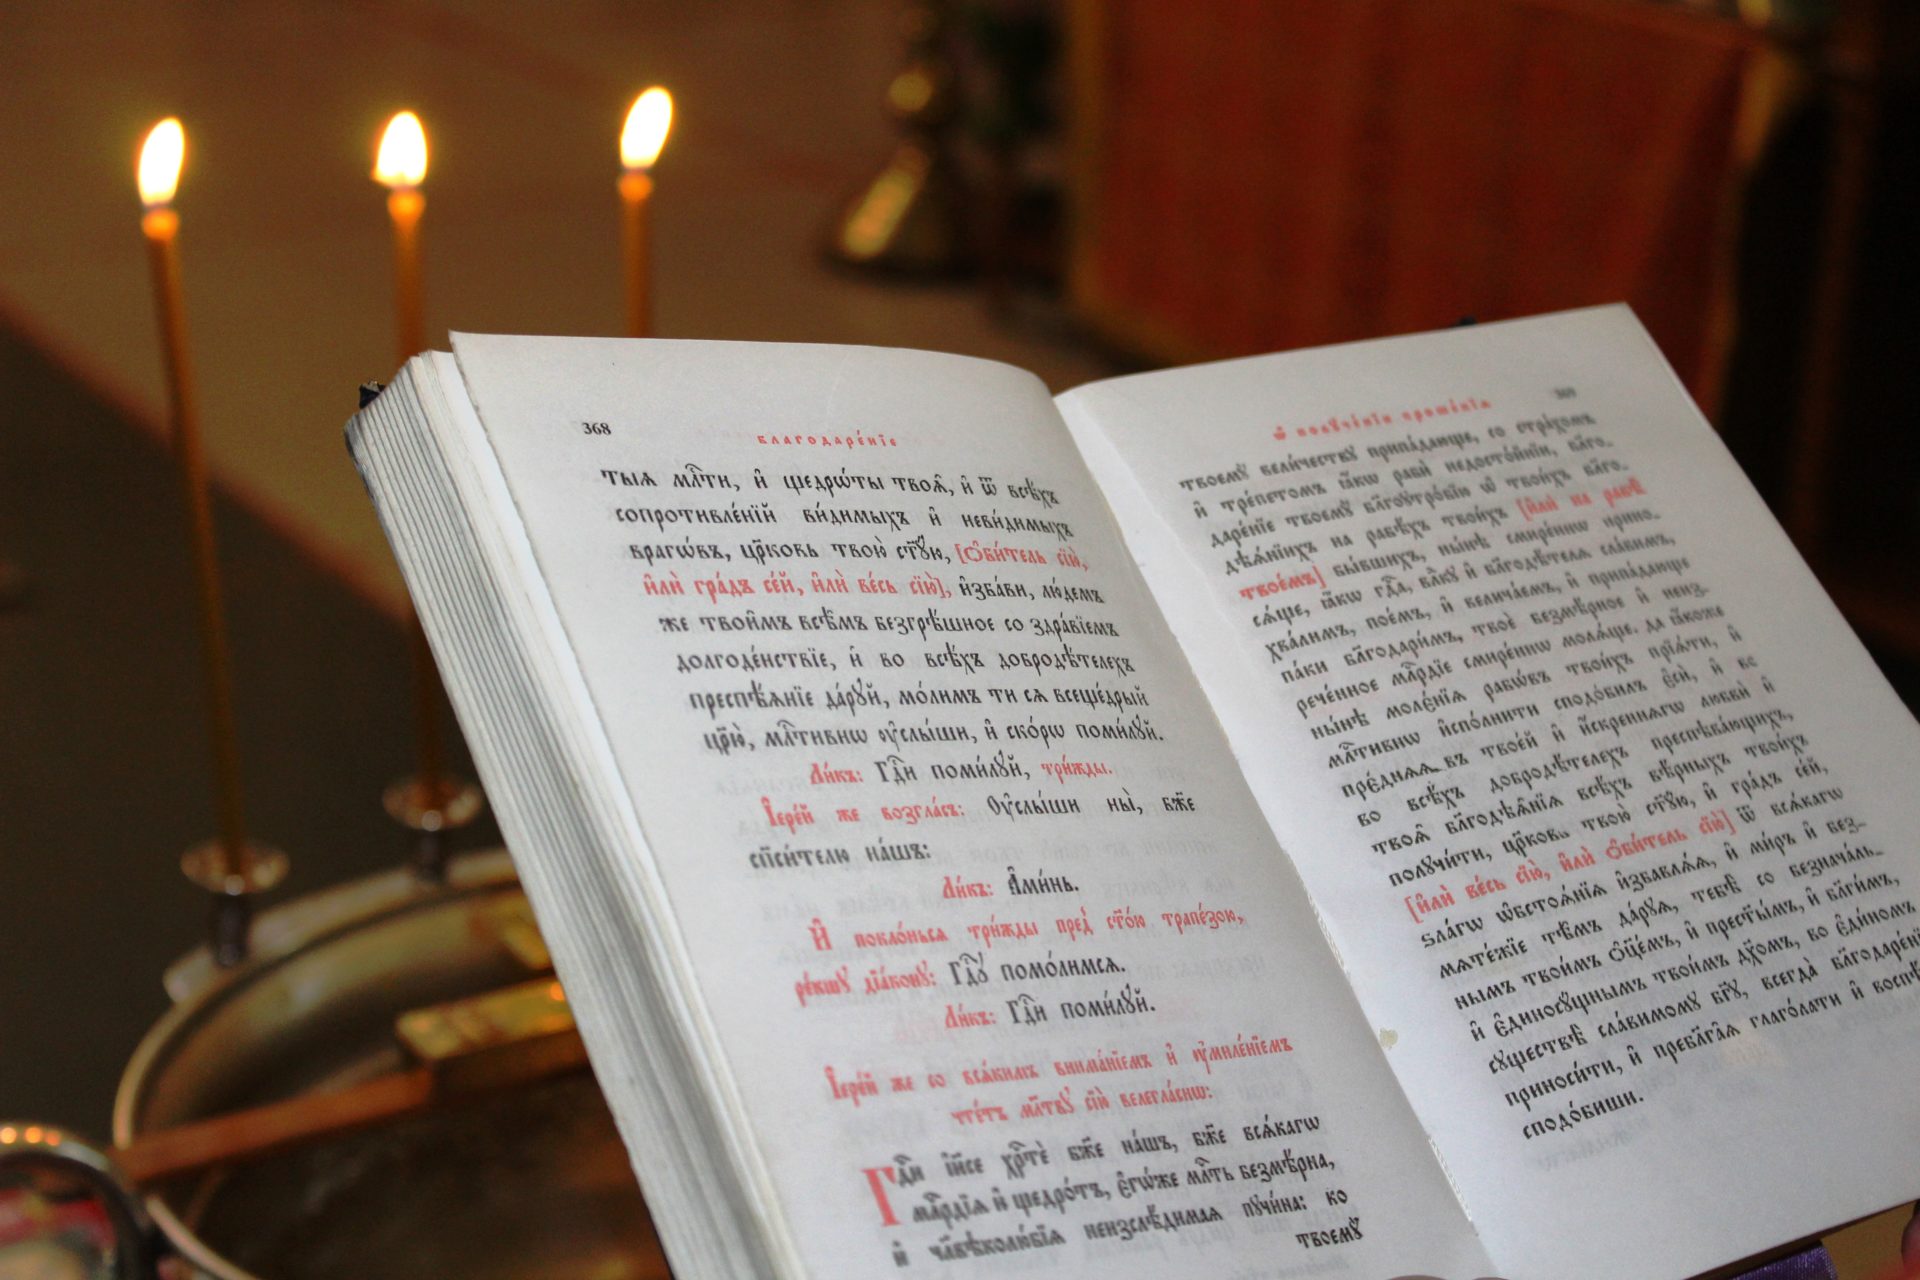 368
благодаре́нїе
тыѧ млⷭ҇ти, и҆ щедрѡ́ты твоѧ̑, и҆ ѿ всѣ́хъ
сопротивле́нїй ви́димыхъ и҆ неви́димыхъ
врагѡ́въ, цр҃ковь твою̀ ст҃ꙋ́ю, [ѻ҆би́тель сїю̀,
и҆лѝ гра́дъ се́й, и҆лѝ ве́сь сїю̀], и҆зба́ви, лю́демъ
же твои̑мъ всѣ̑мъ безгрѣ́шное со здра́вїемъ
долгоде́нствїе, и҆ во всѣ́хъ добродѣ́телехъ
преспѣ́ѧнїе да́рꙋй, мо́лимъ ти сѧ всеще́дрый
цр҃ю̀, млⷭ҇тивнѡ ᲂу҆слы́ши, и҆ ско́рѡ поми́лꙋй.
Ли́къ: Гдⷭ҇и поми́лꙋй, три́жды.
І҆ере́й же возгла́съ: Оу҆слы́ши ны̀, бж҃е
сп҃си́телю на́шъ:
Ли́къ: А҆ми́нь.
И҆ поклонь́сѧ три́жды пред̾ ст҃о́ю трапе́зою,
ре́кшꙋ дїа́конꙋ: Гдⷭ҇ꙋ помо́лимсѧ.
Ли́къ: Гдⷭ҇и поми́лꙋй.
І҆ере́й же со всѧ́кимъ внима́нїемъ и҆ ᲂу҆миле́нїемъ
чте́тъ мл҃твꙋ сїю̀ велегла́снѡ:
Гдⷭ҇и і҆и҃се хрⷭ҇тѐ бж҃е на́шъ, бж҃е всѧ́кагѡ
млⷭ҇рдїѧ и҆ щедро́тъ, є҆гѡ́же млⷭ҇ть безмѣ́рна,
и҆ чл҃вѣколю́бїѧ неизслѣ́димаѧ пꙋчи́на: ко
твоемꙋ̀
369
ѡ҆ полꙋче́нїи проше́нїѧ
твоемꙋ̀ вели́чествꙋ припа́дающе, со стра́хомъ
и҆ тре́петомъ ꙗ҆́кѡ рабѝ недосто́йнїи, бл҃го-
даре́нїе твоемꙋ̀ бл҃гоꙋтро́бїю ѡ҆ твои́хъ бл҃го-
дѣѧ́нїихъ на рабѣ́хъ твои́хъ [и҆лѝ на рабѣ̀
твое́мъ] бы́вшихъ, ны́нѣ смире́ннѡ прино-
сѧ́ще, ꙗ҆́кѡ гдⷭ҇а, влⷣкꙋ и҆ бл҃годѣ́телѧ сла́вимъ,
хва́лимъ, пое́мъ, и҆ велича́емъ, и҆ припа́дающе
па́ки бл҃годари́мъ, твоѐ безмѣ́рное и҆ неиз-
рече́нное млⷭ҇рдїе смире́ннѡ молѧ́ще. да ꙗ҆́коже
ны́нѣ моле́нїѧ рабѡ́въ твои́хъ прїѧ́ти, и҆
млⷭ҇тивнѡ и҆спо́лнити сподо́билъ є҆сѝ, и҆ во
пре́днѧѧ въ твое́й и҆ и҆́скреннѧгѡ любвѝ и҆
во всѣ́хъ добродѣ́телехъ преспѣва́ющихъ,
твоѧ̑ бл҃годѣѧ̑нїѧ всѣ́хъ вѣ́рныхъ твои́хъ
полꙋчи́ти, цр҃ковь твою̀ ст҃ꙋ́ю, и҆ гра́дъ се́й,
[и҆лѝ ве́сь сїю̀, и҆лѝ ѻ҆би́тель сїю̀] ѿ всѧ́кагѡ
ѕла́гѡ ѡ҆бстоѧ́нїѧ и҆збавлѧ́ѧ, и҆ ми́ръ и҆ без-
мѧте́жїе тѣ́мъ да́рꙋѧ, тебѣ̀ со безнача́ль-
нымъ твои́мъ ѻ҆ц҃е́мъ, и҆ прест҃ы́мъ, и҆ бл҃ги́мъ,
и҆ є҆диносꙋ́щнымъ твои́мъ дх҃омъ, во є҆ди́номъ
сꙋществѣ̀ сла́вимомꙋ бг҃ꙋ, всегда̀ бл҃годаре́нїе
приноси́ти, и҆ пребл҃га̑ѧ глаго́лати и҆
сподо́биши.